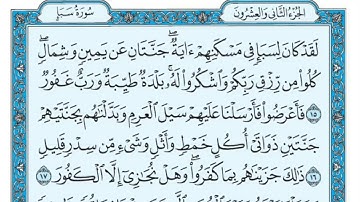 الجزء الثاني والعشرون سورة سبإ
لَقَدْ كَانَ لِسَبَإٍ فِي مَسْكَنِهِمْ ءَايَةٌ ۖ جَنَّتَانِ عَن يَمِينٍ وَشِمَالٍ ۖ
كُلُوا۟ مِن رِّزْقِ رَبِّكُمْ وَٱشْكُرُوا۟ لَهُۥ ۚ بَلْدَةٌ طَيِّبَةٌ وَرَبٌّ غَفُورٌ
١٥ فَأَعْرَضُوا۟ فَأَرْسَلْنَا عَلَيْهِمْ سَيْلَ ٱلْعَرِمِ وَبَدَّلْنَـٰهُم بِجَنَّتَيْهِمْ
جَنَّتَيْنِ ذَوَاتَىْ أُكُلٍ خَمْطٍ وَأَثْلٍ وَشَىْءٍ مِّن سِدْرٍ قَلِيلٍ
١٦ ذَٰلِكَ جَزَيْنَـٰهُم بِمَا كَفَرُوا۟ ۖ وَهَلْ نُجَـٰزِىٓ إِلَّا ٱلْكَفُورَ ١٧